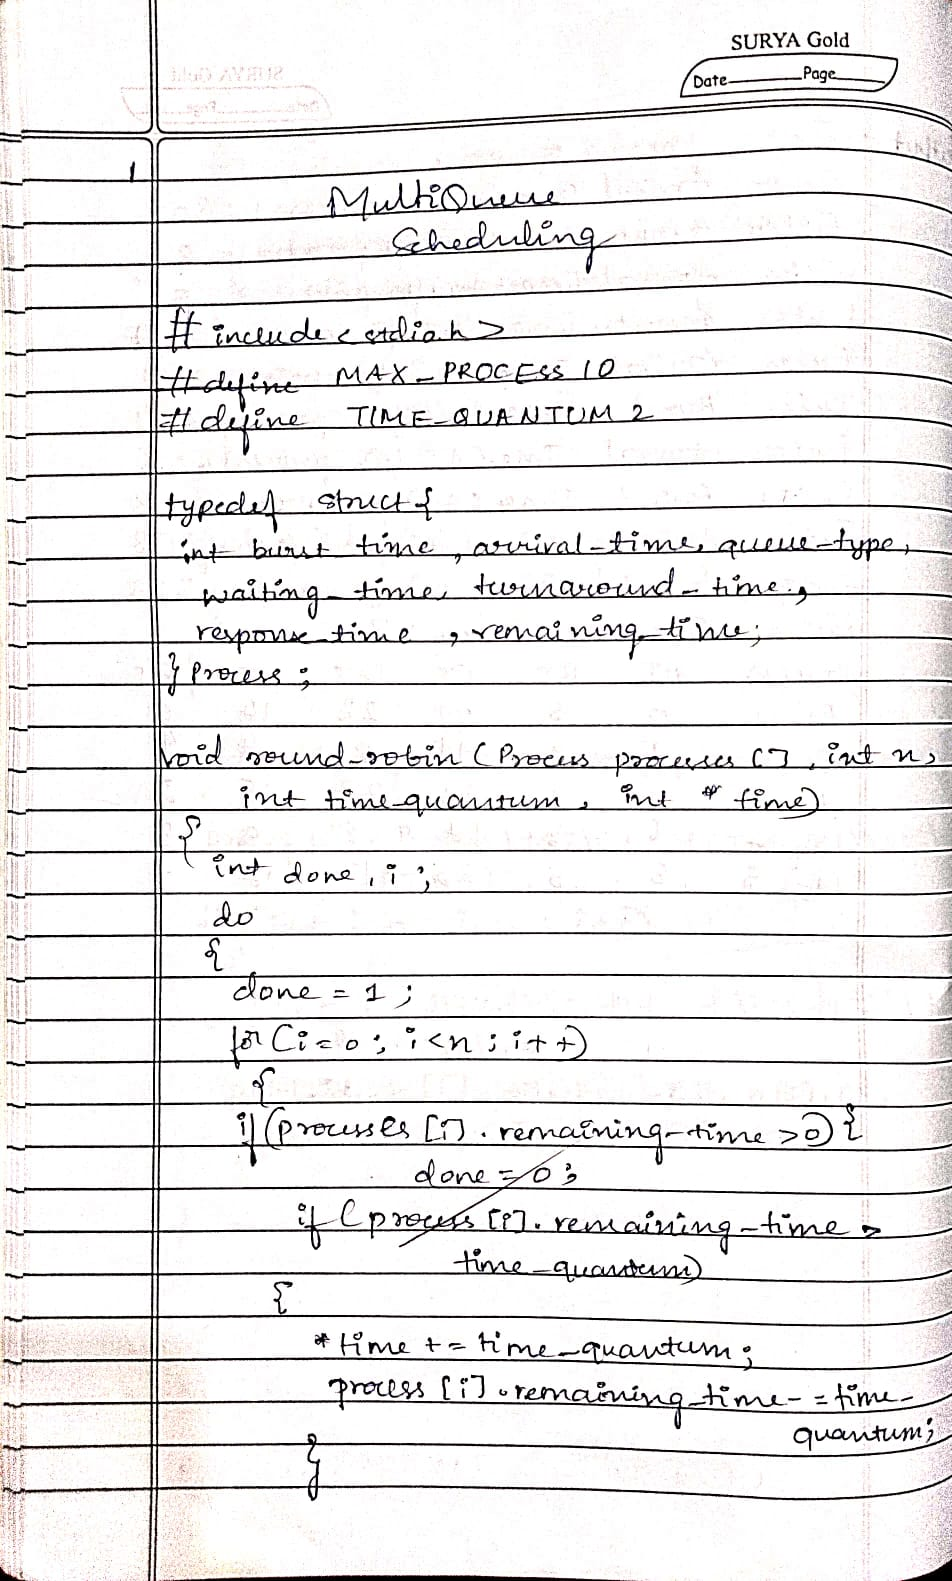 SURYA Gold
Date Page
1
MultiQueue
Scheduling
# include < stdio.h >
# define MAX_PROCESS 10
# define TIME_QUANTUM 2
typedef struct {
int burst time, arrival_time, queue_type,
waiting_time, turnaround_time,
response_time, remaining_time;
} Process;
void round_robin (Process processes [], int n,
int time_quantum, int * time)
{
int done, i;
do
{
done = 1;
for (i=0; i<n; i++)
{
if (processes [i]. remaining_time >0) {
done = 0;
if (process [i]. remaining_time >
time_quantum)
{
* time += time_quantum;
process [i]. remaining_time -= time_
quantum;
}